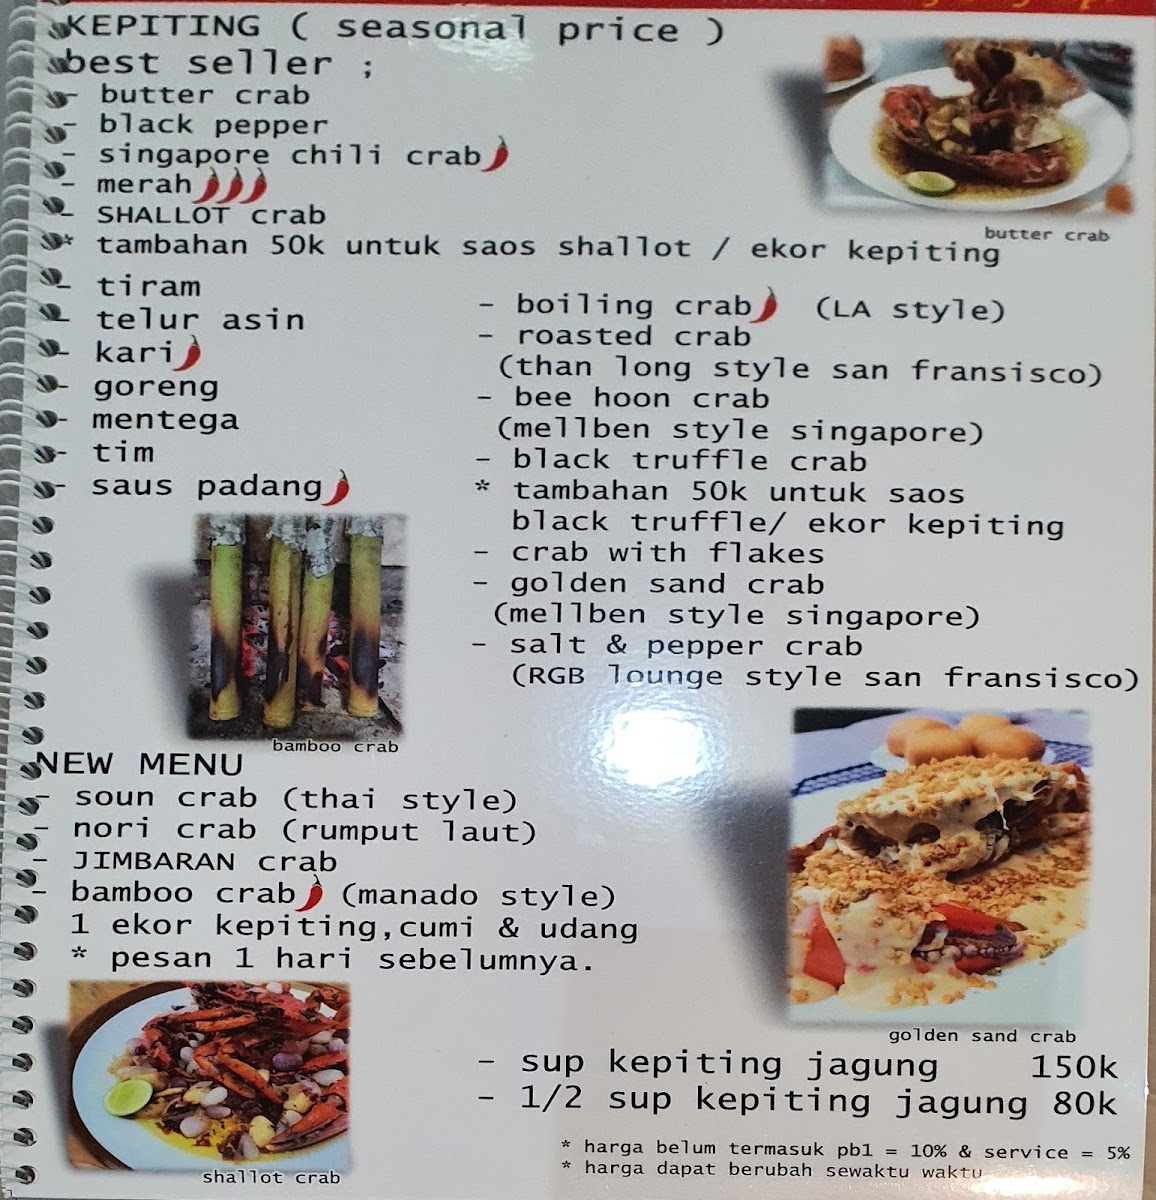 KEPITING ( seasonal price )
best seller ;
- butter crab
- black pepper
- singapore chili crab
- merah
- SHALLOT crab
* tambahan 50k untuk saos shallot / ekor kepiting
butter crab
- tiram
- telur asin
- kari
- goreng
- mentega
- tim
- saus padang
- boiling crab (LA style)
- roasted crab
(than long style san fransisco)
- bee hoon crab
(mellben style singapore)
- black truffle crab
* tambahan 50k untuk saos
black truffle/ ekor kepiting
- crab with flakes
- golden sand crab
(mellben style singapore)
- salt & pepper crab
(RGB lounge style san fransisco)
bamboo crab
NEW MENU
- soun crab (thai style)
- nori crab (rumput laut)
- JIMBARAN crab
- bamboo crab (manado style)
1 ekor kepiting,cumi & udang
* pesan 1 hari sebelumnya.
golden sand crab
- sup kepiting jagung 150k
- 1/2 sup kepiting jagung 80k
* harga belum termasuk pb1 = 10% & service = 5%
* harga dapat berubah sewaktu waktu
shallot crab